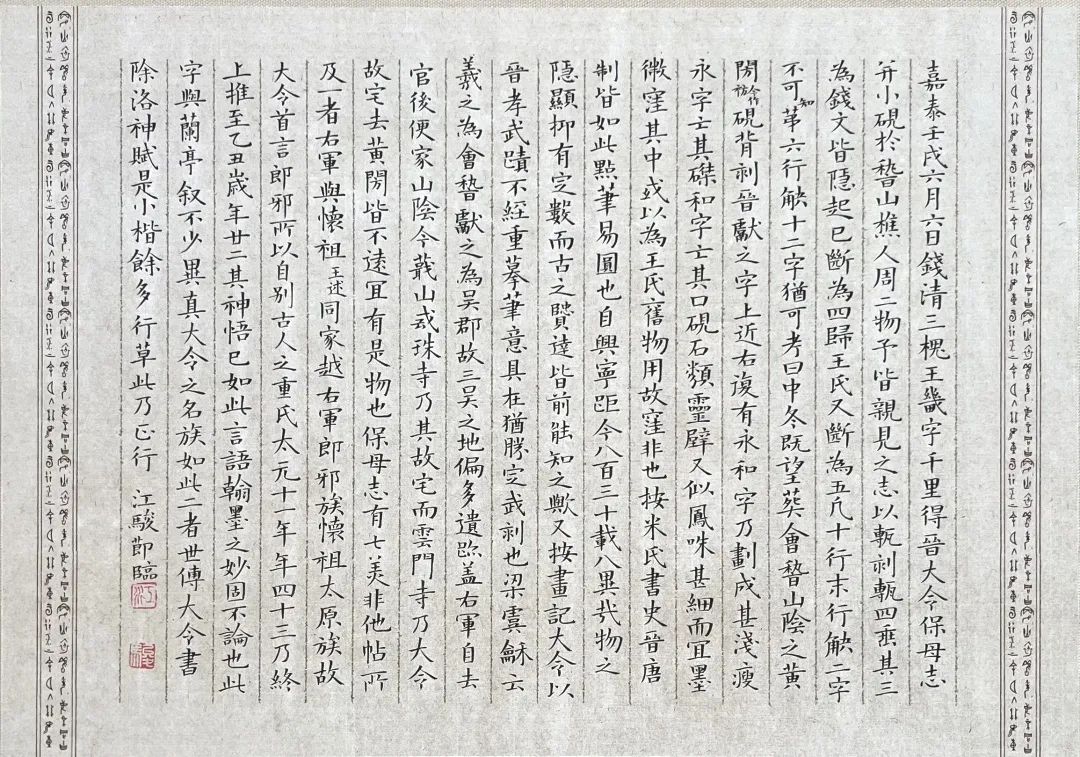 嘉泰壬戌六月六日錢清三槐王畿字千里得晉大令保母志
并小硯於嵇山樵人周二物予皆親見之志以甎刻甎四垂其三
為錢文皆隱起已斷為四歸王氏又斷為五凡十行末行缺二字
不可知第六行缺十二字猶可考曰中冬既望葬會稽山陰之黃
閍硯背刻晉獻之字上近右復有永和字乃劃成甚淺瘦
永字亡其磔和字亡其口硯石類靈壁又似鳳咮甚細而宜墨
微窪其中或以為王氏舊物用故窪非也按米氏書史晉唐
制皆如此點筆易圓也自興寧距今八百三十載八異哉物之
隱顯抑有定數而古之賢達皆前能知之歟又按畫記大令以
晉孝武蹟不經重摹筆意具在猶勝定武刻也梁虞龢云
羲之為會稽獻之為吳郡故三吳之地偏多遺跡蓋右軍自去
官後便家山陰今蕺山戒珠寺乃其故宅而雲門寺乃大令
故宅去黃閍皆不遠宜有是物也保母志有七美非他帖所
及一者右軍與懷祖王述同家越右軍郎邪族懷祖太原族故
大令首言郎邪所以自別古人之重氏太元十一年年四十三乃終
上推至乙丑歲年廿二其神悟已如此言語翰墨之妙固不論也此
字與蘭亭叙不少異真大令之名族如此二者世傳大令書
除洛神賦是小楷餘多行草此乃正行 江駿節臨